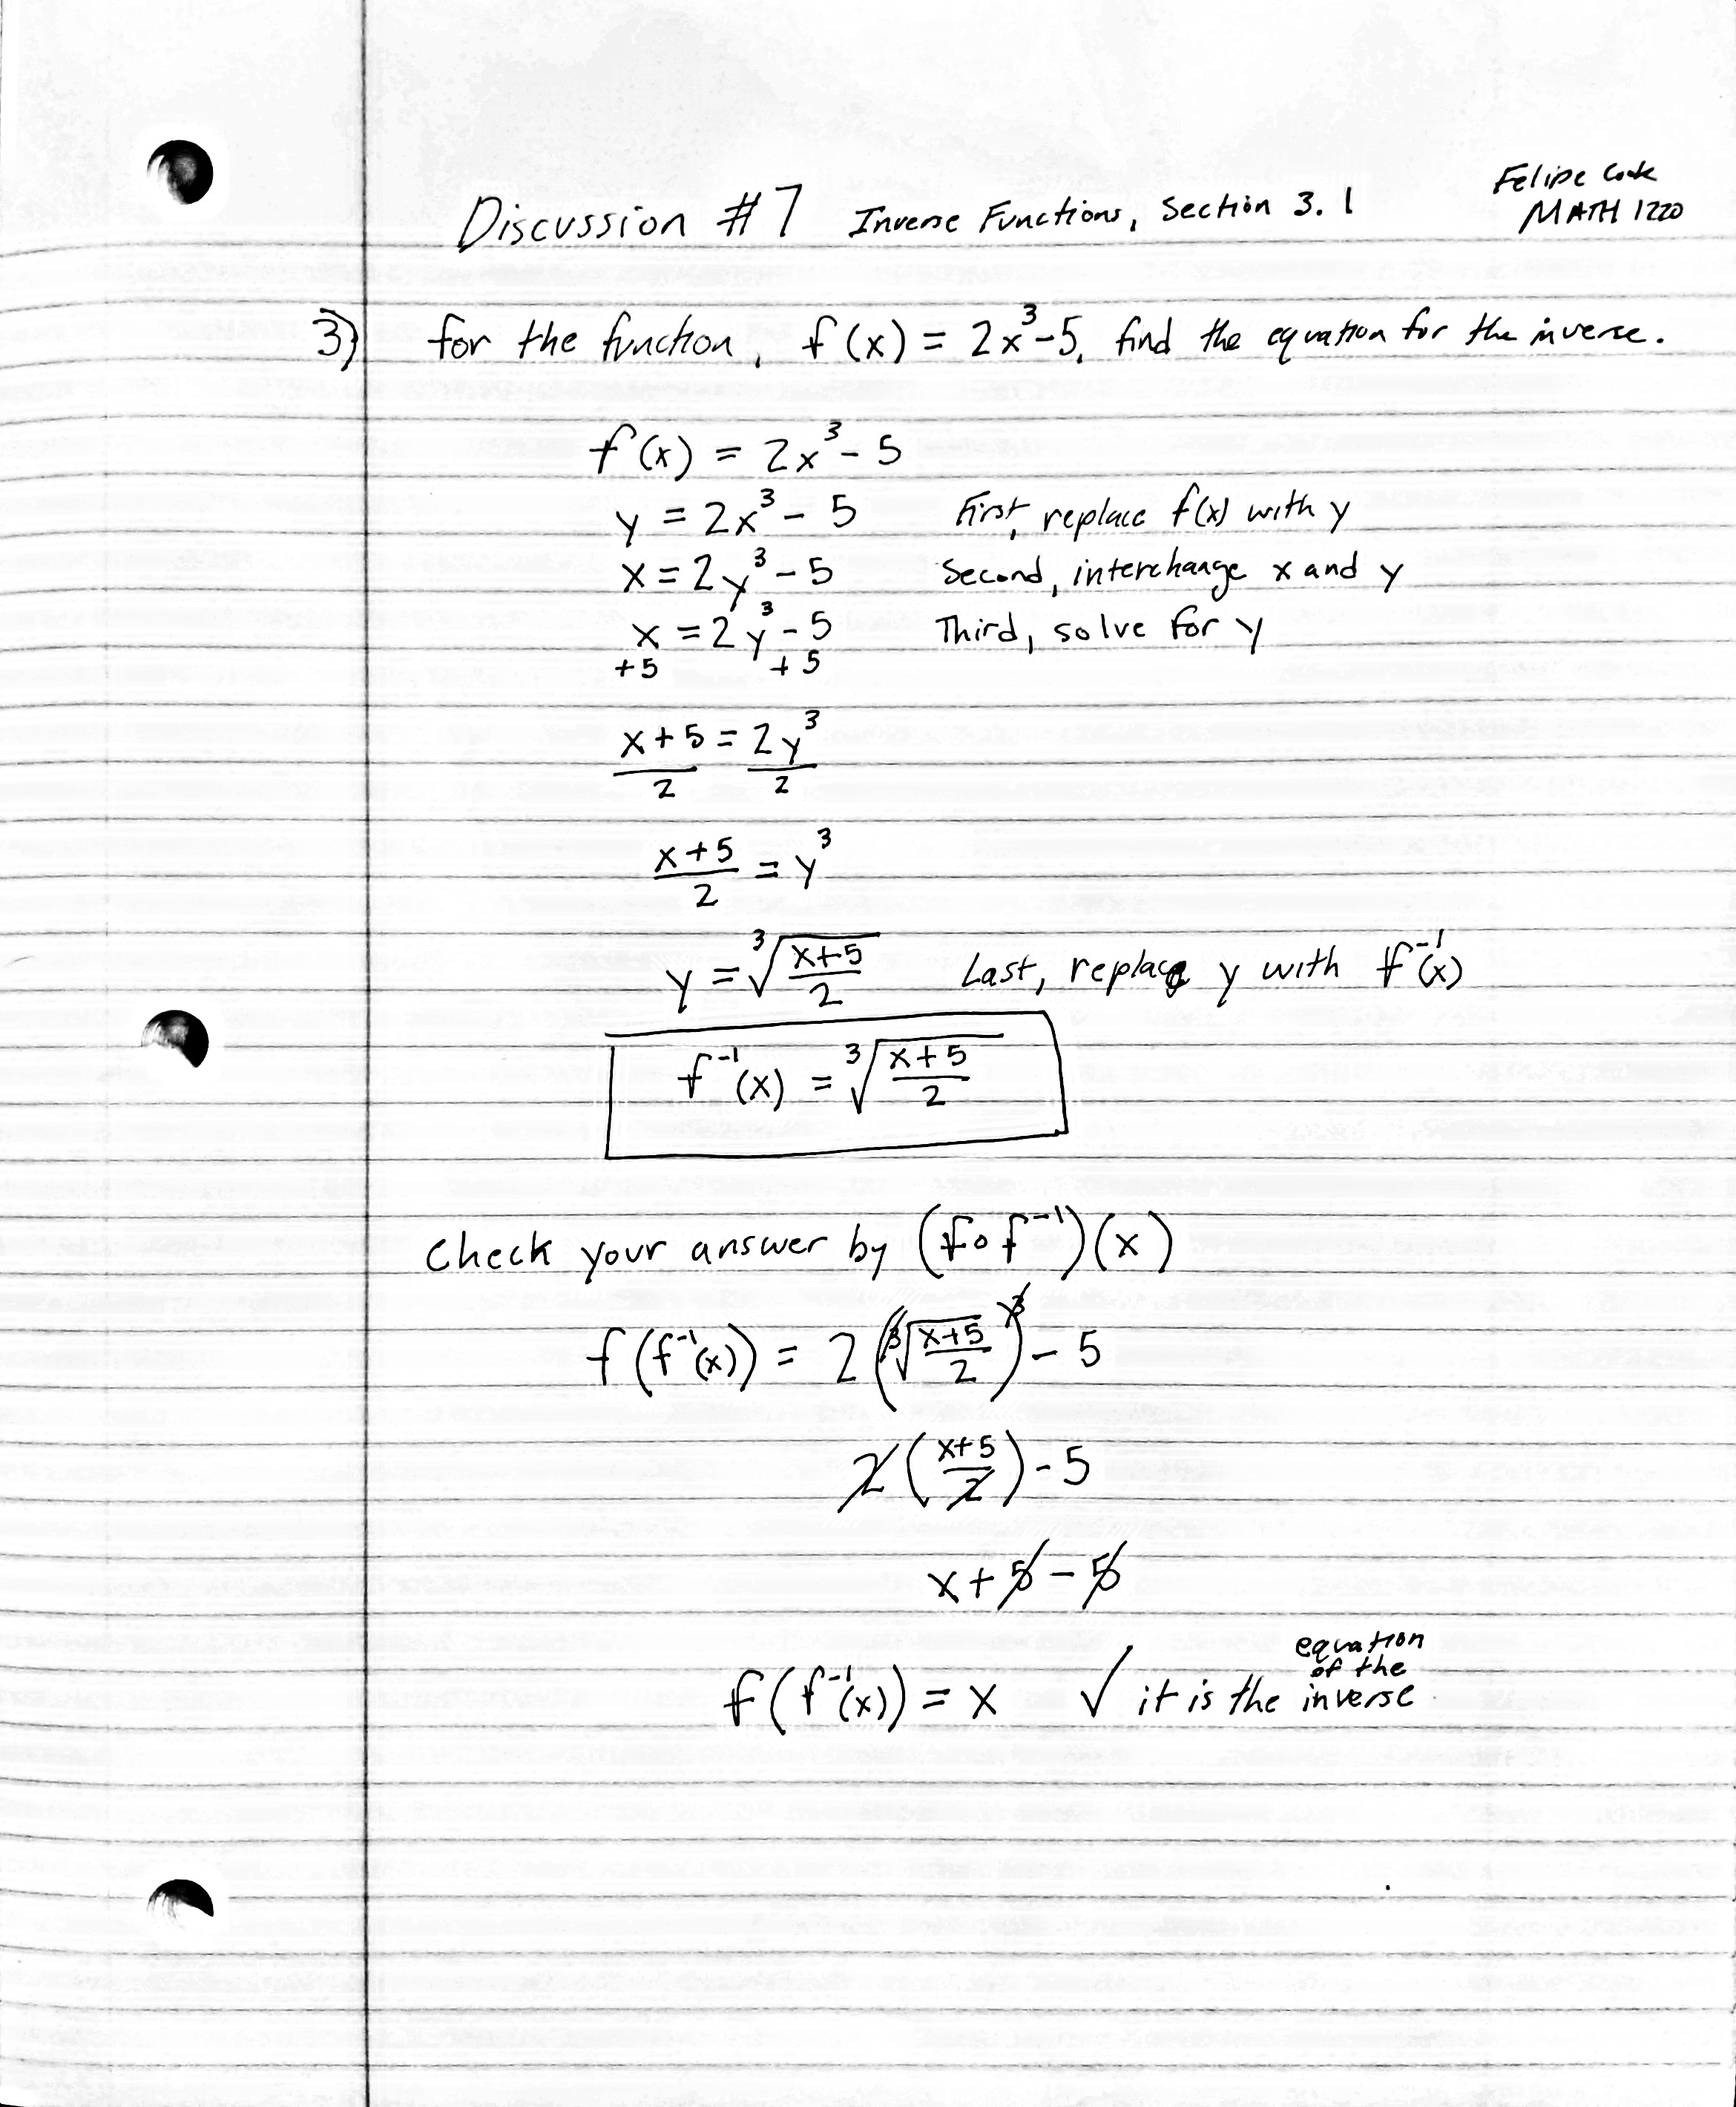 Felipe Cook
Discussion #7 Inverse Functions, Section 3.1 MATH 1220
3) for the function, f(x) = 2x³-5, find the equation for the inverse.
f(x) = 2x³ - 5
y = 2x³ - 5 First, replace f(x) with y
x = 2y³ - 5 Second, interchange x and y
x = 2y³ - 5 Third, solve for y
+5 +5
x+5 = 2y³
2 2
x+5
2 = y³
y = ³√(x+5)/2 Last, replace y with f⁻¹(x)
f⁻¹(x) = ³√(x+5)/2
Check your answer by (f∘f⁻¹)(x)
f(f⁻¹(x)) = 2(³√(x+5)/2)³ - 5
2((x+5)/2) - 5
x + 5 - 5
equation
of the
f(f⁻¹(x)) = x ✓ it is the inverse